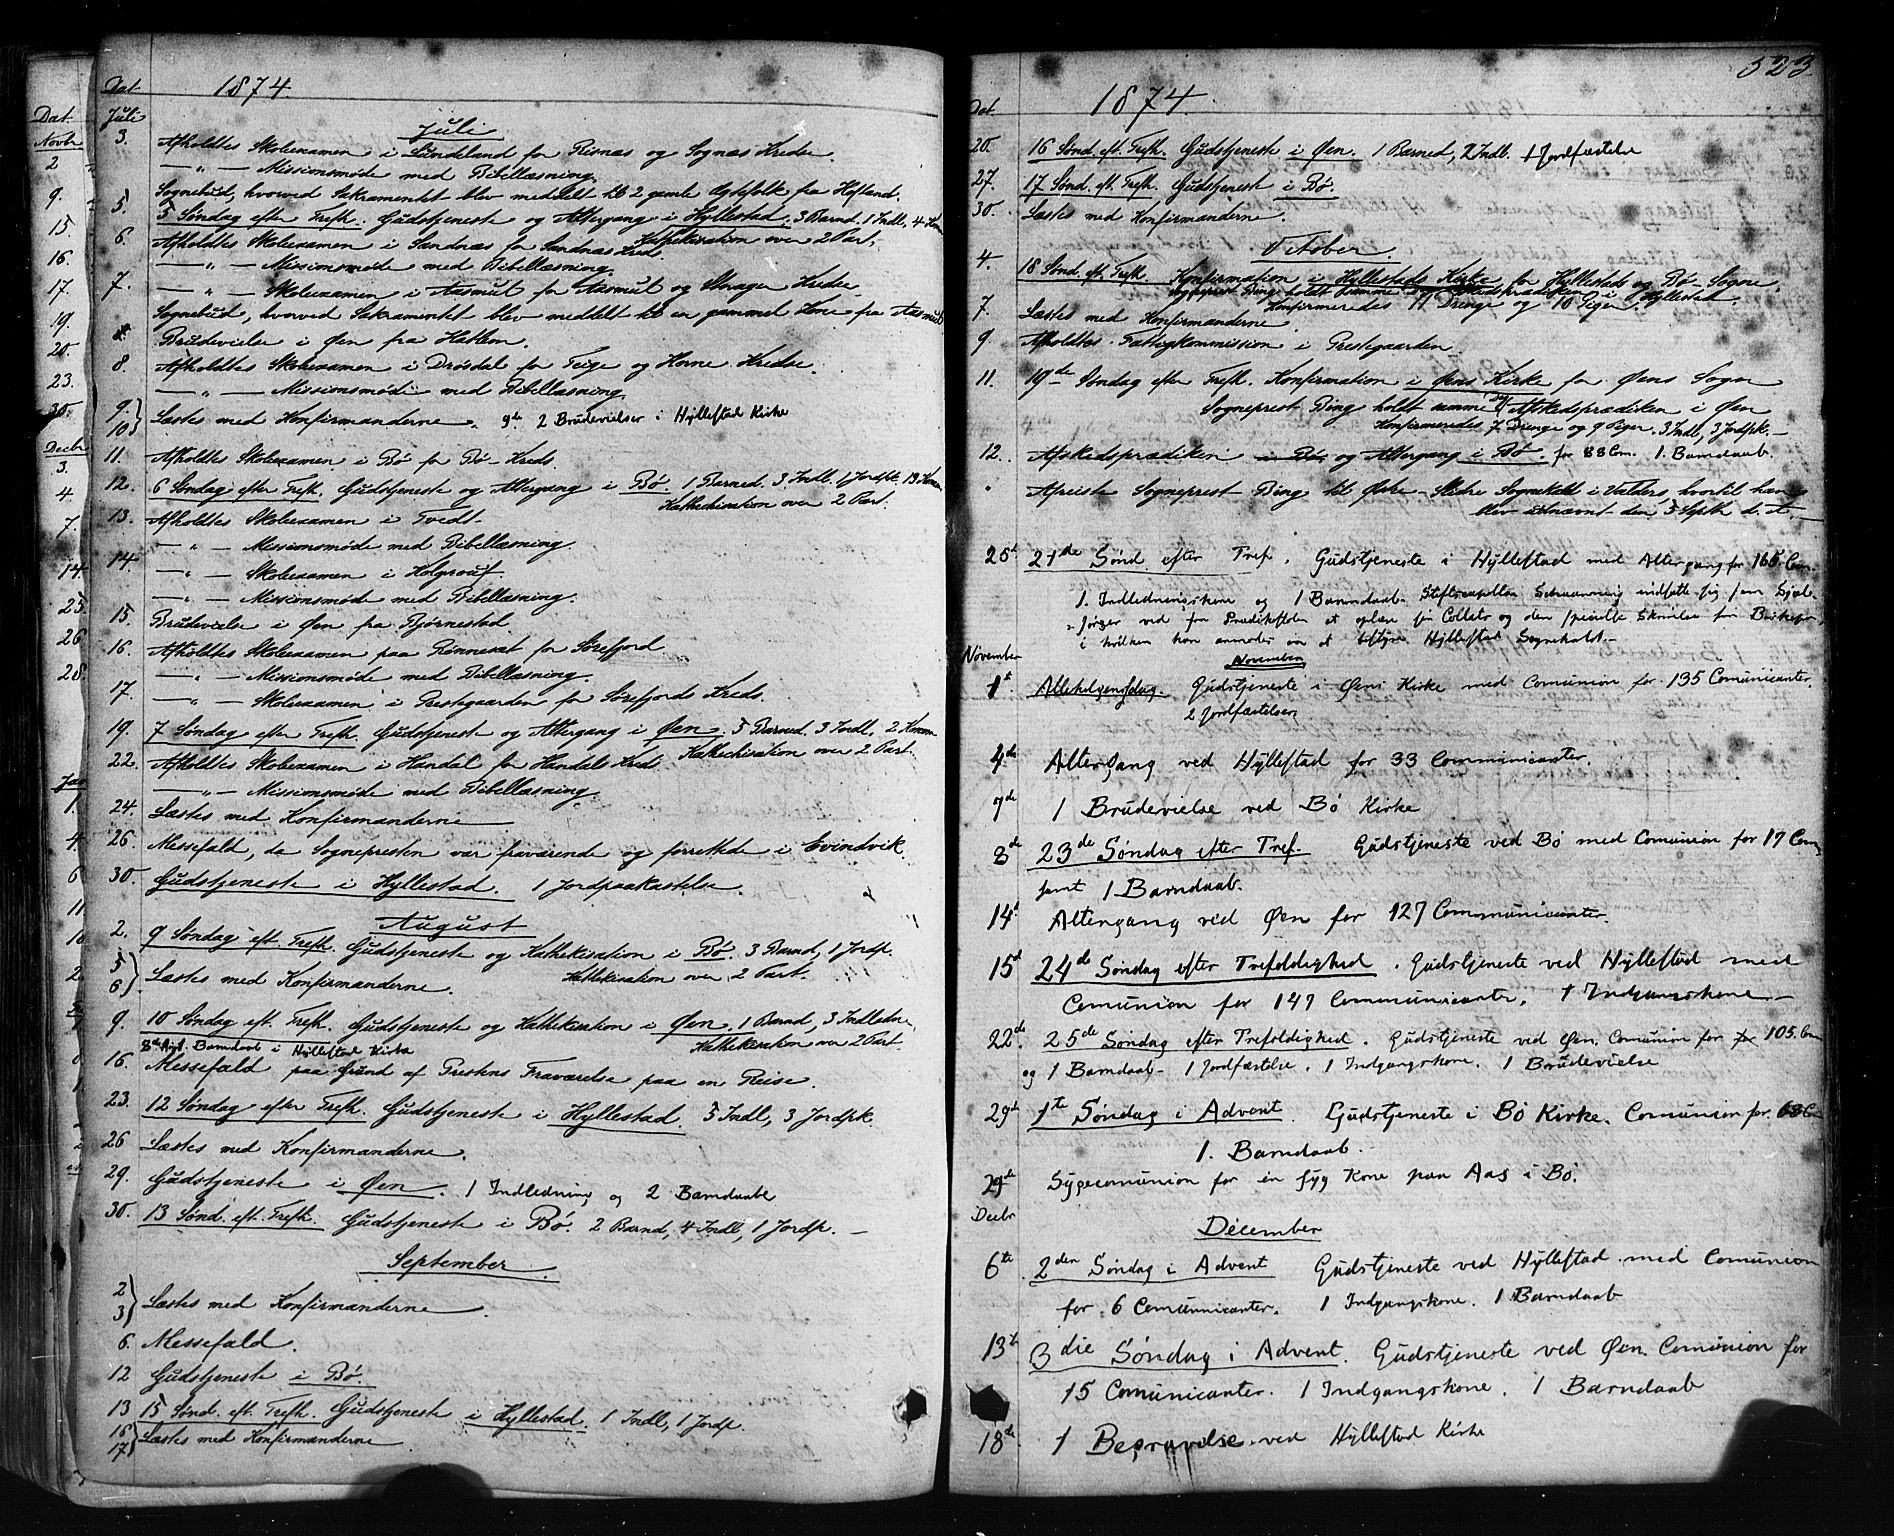 Dat. 1874.
Juli
Juli
3. Afholdtes Skoleexamen i Sündeland for Risnæs og Sognæs Kredse.
— „ — Missionsmøde med Bibellæsning.
Sognebud, hvorved Sakramentet blev meddelt til 2 gamle Ægtefolk fra Hofland.
5. 5 Søndag efter Trefh. Gudstjeneste og Altergang i Hyllestad. 3 Barnd, 1 Indl, 4 Kom
Kathekisation over 2 Part.
6. Afholdtes Skoleexamen i Sandnæs for Sandnæs Kreds.
— „ — Missionsmøde med Bibellæsning.
7. — „ — Skoleexamen i Aasmut for Aasmut og Skivagen Kredse.
Sognebud, hvorved Sakramentet blev meddelt til en gammel Kone fra Aasmut
8. Brudevielse i Øen fra Hatlem.
8. Afholdtes Skoleexamen i Drøsdal for Teige og Horne Kredse.
— „ — Missionsmøde med Bibellæsning.
9. 10. Læstes med Konfirmanderne. 9de 2 Brudevielser i Hyllestad Kirke
11. Afholdtes Skoleexamen i Bø for Bø-Kreds.
12. 6 Søndag efter Trefh. Gudstjeneste og Altergang i Bø. 1 Barned. 3 Indl. 1 Jordpk. 13 Komm
Kathechisation over 2 Part.
13. Afholdtes Skoleexamen i Tvedt.
— „ — Missionsmøde med Bibellæsning.
14. — „ — Skoleexamen i
— „ — Missionsmøde med Bibellæsning.
15. Brudevielse i Øen fra Bjørnestad.
16. Afholdtes Skoleexamen paa Rønneset for Sørefjord
— „ — Missionsmøde med Bibellæsning.
17. — „ — Skoleexamen i Prestegaarden for Sørefjords Kreds.
19. 7 Søndag efter Trefh. Gudstjeneste og Altergang i Øen. 5 Barned. 3 Indl. 2 Komm
Kathechisation over 2 Part.
22. Afholdtes Skoleexamen i Handal for Handals Kreds.
— „ — Missionsmøde med Bibellæsning.
24. Læstes med Konfirmanderne
26. Messefald, da Sognepresten var fraværende og forrettede i Evindvik.
30. Gudstjeneste i Hyllestad. 1 Jordpaakastelse.
August
2. 9 Søndag eft. Trefh. Gudstjeneste og Kathekisation i Bø. 3 Barnd, 1 Jordpk.
Kathekisation over 2 Part.
5 6 Læstes med Konfirmanderne.
9. 10 Søndag eft. Trefh. Gudstjeneste og Kathekisation i Øen. 1 Barnd, 3 Indledn,
Kathekisation over 2 Part.
8de Aug. Barndaab i Hyllestad Kirke
16. Messefald paa Grund af Prestens Fraværelse paa en Reise.
23. 12 Søndag efter Trefh. Gudstjeneste i Hyllestad. 5 Indl, 3 Jordpk
26 Læstes med Konfirmanderne.
29. Gudstjeneste i Øen. 1 Indledning og 2 Barndaabe
30. 13 Sønd. eft. Trefh. Gudstjeneste i Bø. 2 Barnd, 4 Indl, 1 Jordpk. —
September
2 3 Læstes med Konfirmanderne.
6. Messefald.
12 Gudstjeneste i Bø.
13 15 Sønd. eft. Trefh. Gudstjeneste i Hyllestad. 1 Indl, 1 Jordpk.
16 17 Læstes med Konfirmanderne.
523
Dat. 1874.
20. 16 Sønd. eft. Trefh. Gudstjeneste i Øen. 1 Barned, 2 Indl. 1 Jordfæstelse
27. 17 Sønd. eft. Trefh. Gudstjenest i Bø.
30. Læstes med Konfirmanderne.
Oktober.
4. 18 Sønd. eft. Trefh. Konfirmation i Hyllestads Kirke for Hyllestads og Bø-Sogne.
Sogneprest Bing holdt samme Dag Afskedsprædiken i Hyllestad.
Konfirmeredes 11 Drenge og 10 Piger.
7. Læstes med Konfirmanderne
9. Afholdtes Fattigkommission i Prestegaarden.
11. 19de Søndag efter Trefh. Konfirmation i Øens Kirke for Øens Sogn
Sogneprest Bing holdt samme Dag Afskedsprædiken i Øen
Konfirmeredes 7 Drenge og 9 Piger. 3 Indl, 3 Jordpk. —
12. Afskedsprædiken i Bø og Altergang i Bø. for 88 Com. 1 Barndaab.
„ Afreiste Sogneprest Bing til Østre-Slidre Sognekald i Valders, hvortil han
blev udnævnt den 5 Septb. d. A. —
25d 21de Sønd efter Tref. Gudstjeneste i Hyllestad med Altergang for 165 Com.
1. Indledningskone og 1 Barndaab. Stiftscapellan Schraaning indsatte sig som Sjæle-
sørger ved fra Prædikestolen at oplæse sin Collats og den specielle Skrivelse fra Biskopen,
i hvilken han anmodes om at bestyre Hyllestad Sognekald. —
November
November
1st Allehelgensdag. Gudstjeneste i Øens Kirke med Comunion for 135 Comunicanter.
2 Jordfæstelser.
4de Altergang ved Hyllestad for 33 Communicanter.
7de 1 Brudevielse ved Bø Kirke
8de 23de Søndag efter Tref. Gudstjeneste ved Bø med Comunion for 17 Com.
samt 1 Barndaab.
14d Altergang ved Øen for 127 Communicanter.
15d 24de Søndag efter Trefoldighed. Gudstjeneste ved Hyllestad med
Comunion for 147 Communicanter. 1 Indgangskone —
22de 25de Søndag efter Trefoldighed. Gudstjeneste ved Øen. Comunion for for 105. Com
og 1 Barndaab — 1 Jordfæstelse. 1 Indgangskone. 1 Brudevielse
29d 1te Søndag i Advent. Gudstjeneste i Bø Kirke. Comunion for 68 Com
1. Barndaab.
29de Sygecomunion for en syg Kone paa Aas i Bø.
Decbr
December
6te 2den Søndag i Advent Gudstjeneste ved Hyllestad med Comunion
for 6 Comunnicanter. 1 Indgangskone. 1 Barndaab
13de 3die Søndag i Advent. Gudstjeneste ved Øen. Comunion for
15 Comunicanter. 1 Indgangskone. 1 Barndaab
18de 1 Begravelse ved Hyllestad Kirke
Dat.
Novbr
2
9.
15.
16.
17.
19.
20.
23.
30.
Decbr
3.
4.
7.
14.
25.
26
28.
Jan
1.
4.
6
11.